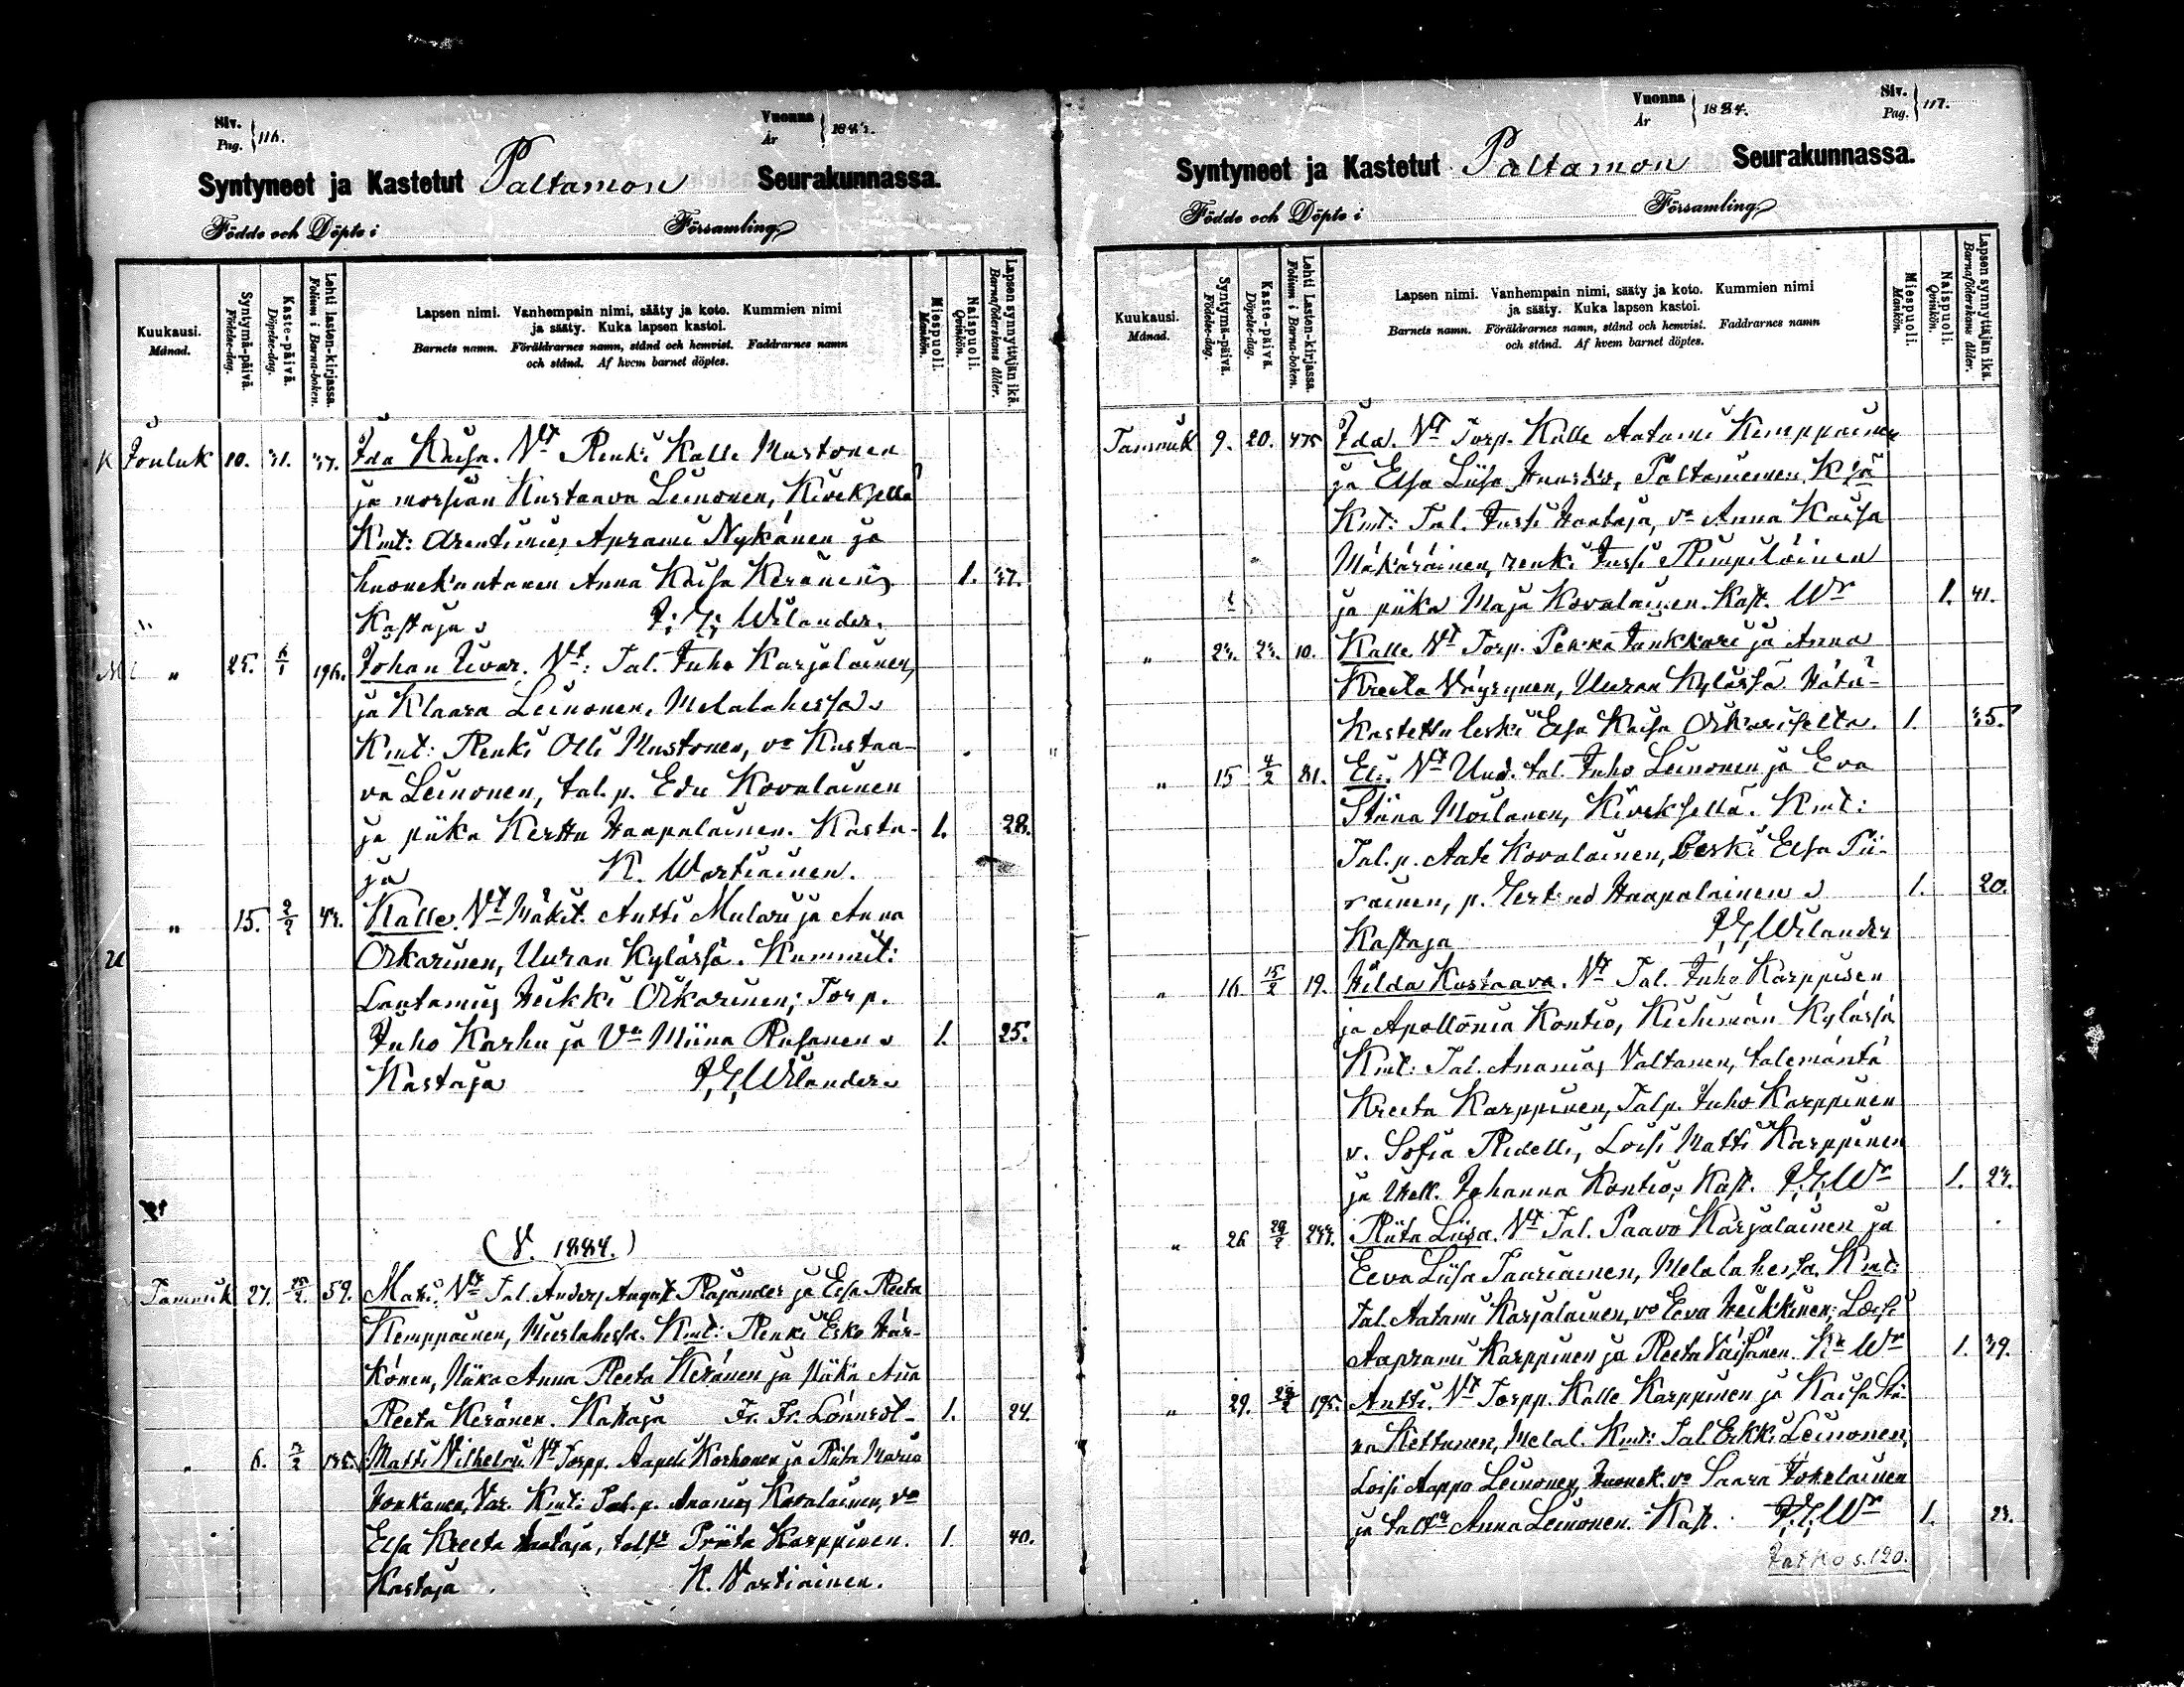 Siv.
Pag. } 116.
Vuonna
År } 1883.
Syntyneet ja Kastetut Paltamon Seurakunnassa.
Födde och Döpte i Församling
Kuukausi.
Månad.
Syntymä-päivä.
Födelse-dag.
Kaste-päivä.
Döpelse-dag.
Lehti lasten-kirjassa.
Folium i Barna-boken.
Lapsen nimi. Vanhempain nimi, sääty ja koto. Kummien nimi
ja sääty. Kuka lapsen kastoi.
Barnets namn. Föräldrarnes namn, stånd och hemvist. Faddrarnes namn
och stånd. Af hvem barnet döptes.
Miespuoli.
Mankön.
Naispuoli.
Qvinkön.
Lapsen synnyttäjän ikä.
Barnaföderskans ålder.
K Jouluk 10. 31. 37. Ida Kaisa. Vt Renki Kalle Mustonen
ja morsian Kustaava Leinonen, Kiveksellä
Kmt: Arentimies Aprami Nykänen ja
huonekuntanen Anna Kaisa Keränen 1. 37.
Kastaja J. F. Wilander.
" 25. 6/1 196. Johan Iivar. Vt: Tal. Juho Karjalainen,
ja Klaara Leinonen, Melalahessa
Kmt: Renki Olli Mustonen, vo Kustaa-
va Leinonen, tal. p. Edu Kovalainen
ja piika Kerttu Haapalainen. Kasta- 1. 28.
ja K. Wartiainen.
" 15. 2/2 43. Kalle. Vt Mäkit. Antti Mulari ja Anna
Oikarinen, Uuran Kylässä. Kummit:
Lautamies Heikki Oikarinen; Torp.
Juho Karhu ja Vo Miina Rusanen 1. 25.
Kastaja J. F. Wilander
(V. 1884.)
Tammik 27. 15/2 59. Matti. Vt Tal. Anders August Rajander ja Elsa Reeta
Kemppainen, Mieslahessa. Kmt: Renki Esko Här-
könen, Piika Anna Reeta Keränen ja Piika Anna
Reeta Keränen. Kastaja Fr. Fr. Lönnrot 1. 24.
" 6. /2 Matti Vilhelmi Vt Torpp. Aapeli Korhonen ja Riita Maria
Honkanen, Var. Kmt: Tal. p. Ananias Kovalainen, vo
Elsa Kreeta Haataja, talo Priita Karppinen. 1. 40.
Kastaja K. Vartiainen.
Vuonna
År } 1884.
Siv.
Pag. } 117.
Syntyneet ja Kastetut Paltamon Seurakunnassa.
Födde och Döpte i Församling
Kuukausi.
Månad.
Syntymä-päivä.
Födelse-dag.
Kaste-päivä.
Döpelse-dag.
Lehti Lasten-kirjassa.
Folium i Barna-boken.
Lapsen nimi. Vanhempain nimi, sääty ja koto. Kummien nimi
ja sääty. Kuka lapsen kastoi.
Barnets namn. Föräldrarnes namn, stånd och hemvist. Faddrarnes namn
och stånd. Af hvem barnet döptes.
Miespuoli.
Mankön.
Naispuoli.
Qvinkön.
Lapsen synnyttäjän ikä.
Barnaföderskans ålder.
Tammik 9. 20. 475 Ida. Vt Torp. Kalle Aatami Kemppainen
ja Elsa Liisa, Paltaniemen K.sä
Kmt: Tal. Jussi Haataja, vo Anna Kaisa
Mäkäräinen, renki Jussi Rimpiläinen
ja piika Maja Kovalainen. Kast. Wr 1. 41.
" 23. 23. 10. Kalle Vt Torp. Pekka Tankkari ja Anna
Kreeta Väyrynen, Uuran Kylässä. Hätä-
kastettu leski Elsa Kaisa Oikariselta. 1. 35.
" 15 4/2 81. Eli. Vt Und. tal. Juho Leinonen ja Eva
Stiina Moilanen, Kiveksellä. Kmt:
Tal. p. Aate Kovalainen, Leski Elsa Pii-
rainen, p. Gertrud Haapalainen 1. 20.
Kastaja J. F. Wilander
" 16 15/2 19. Hilda Kustaava. Vt Tal. Juho Karppisen
ja Apollonia Kontio, Kiehimän Kylässä
Kmt: Tal. Ananias Valtanen, talemäntä
Kreeta Karppinen, Tal. p. Juho Karppinen
v. Sofia Ridelli, Loisi Matti Karppinen
ja Johanna Kontio, Kast. J. F. Wr 1. 23.
" 26 29/2 233. Riita Liisa. Vt Tal. Paavo Karjalainen ja
Eeva Liisa Tauriainen, Melalahessa. Kmt:
Tal. Aatami Karjalainen, vo Eeva Heikkinen, Loisi
Aaprami Karppinen ja Reeta Väisänen. Kn Wr 1. 39.
" 29. /2 195. Antti. Vt Torpp. Kalle Karppinen ja Kaisa Stii-
na Kettunen, Melal. Kmt: Tal. Erkki Leinonen,
Loisi Aappo Leinonen, Huonek. vo Saara Jokelainen
ja Anna Leinonen. Kast. J. F. Wr 1. 23.
Jatko s. 120.